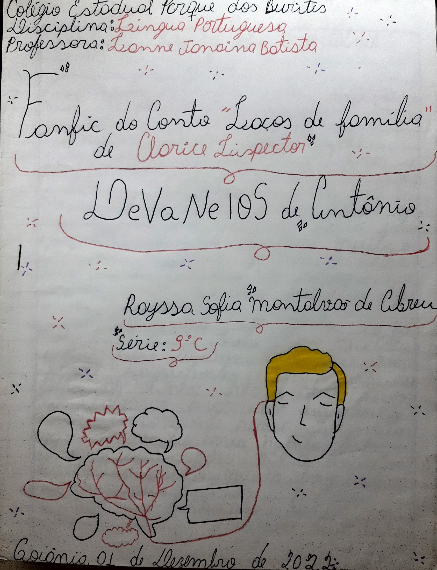 Colégio Estadual Parque dos Buritis
Disciplina: Língua Portuguesa
Professora: Lianne Janaina Batista
Fanfic do Conto "Laços de família"
de Clarice Lispector
DeVaNeIOS de Antônio
Rayssa Sofia Montalvão de Abreu
Série: 9° C
Goiânia 01 de Dezembro de 2022